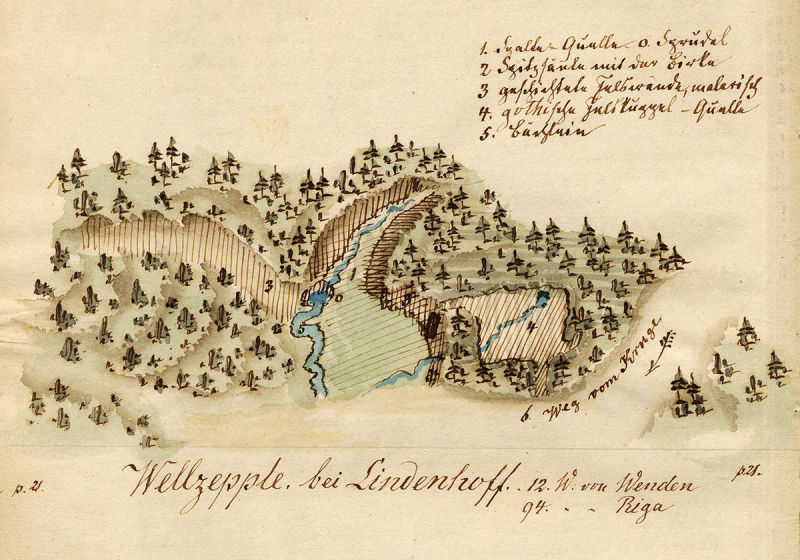 1. Spalte-Quelle o. Sprudel
2 Spitzsäule mit der Birke
3 geschichtete Felswände, malerisch
4. gothische Felskuppel-Quelle
5. Bächlein
3
1
4
6. Weg vom Kruge
Wellzepple. bei Lindenhoff. 12. W. von Wenden
94. - - Riga
p. 21.
p21.